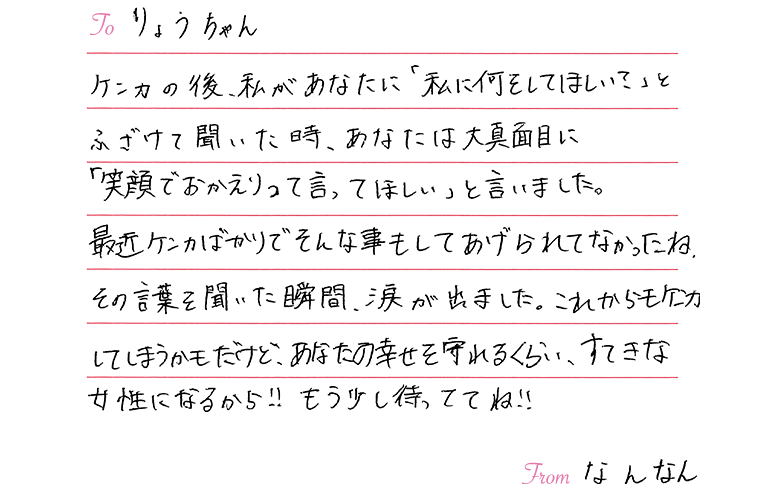 To りょうちゃん
ケンカの後、私があなたに「私に何をしてほしいて」と
ふざけて聞いた時、あなたは大真面目に
「笑顔でおかえりって言ってほしい」と言いました。
最近ケンカばかりでそんな事もしてあげられてなかったね、
その言葉を聞いた瞬間、涙が出ました。これからもケンカ
してしまうかもだけど、あなたの幸せを守れるくらい、すてきな
女性になるから!! もう少し待っててね!!
From なんなん